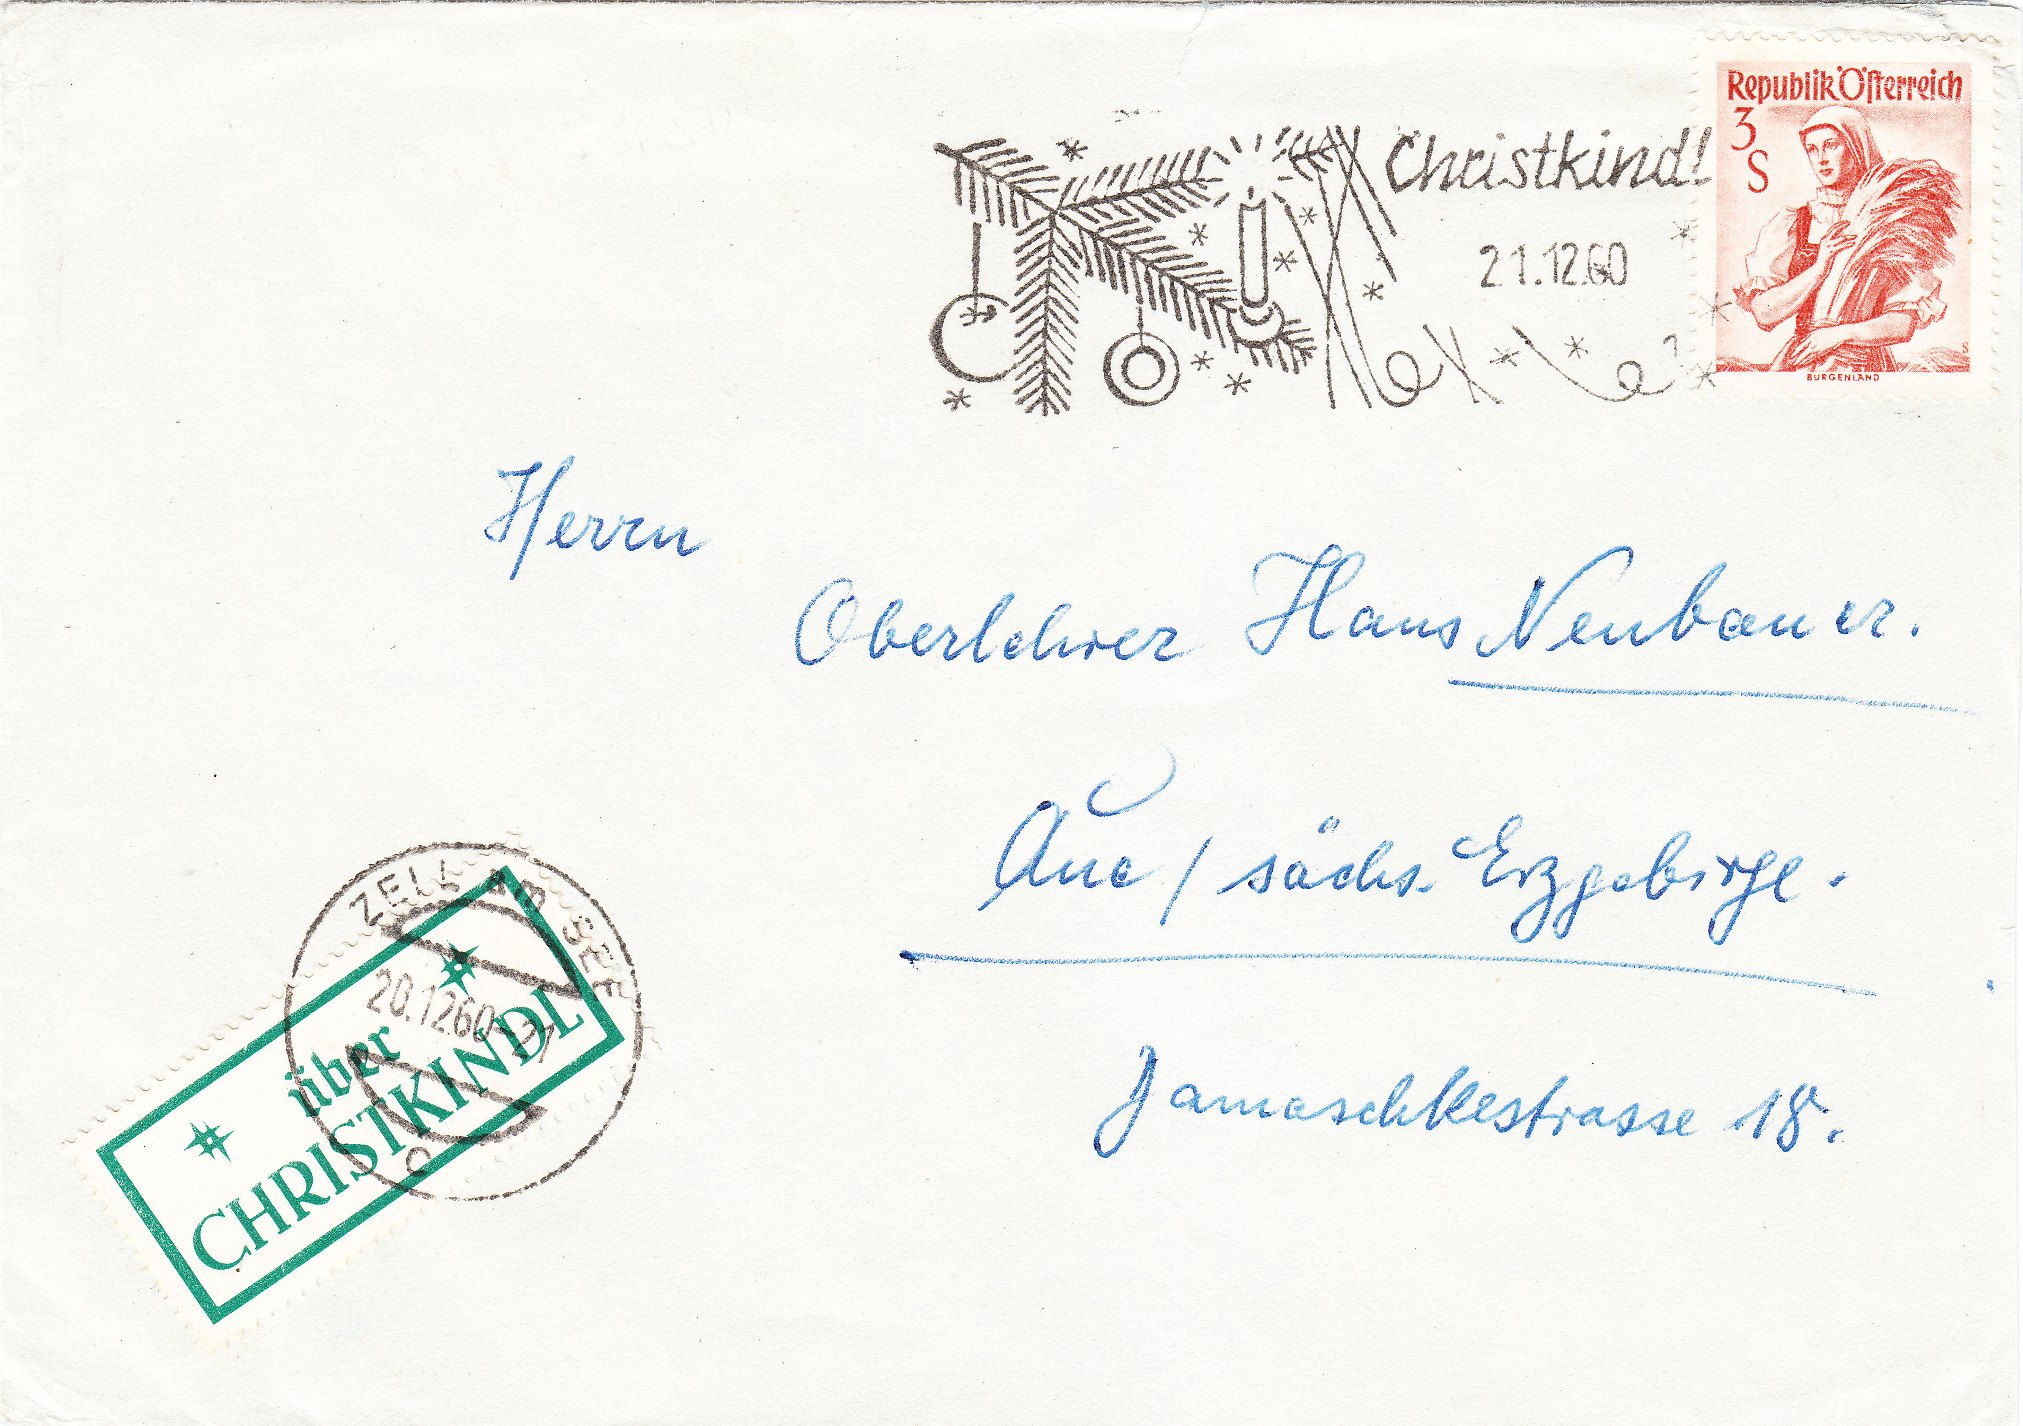 Republik Österreich
3
S
BURGENLAND
Christkindl
21.12.60
Herrn
Oberlehrer Hans Neubauer.
Aue / sächs. Erzgebirge.
Damaschkestrasse 18.
ZELL AM SEE
20.12.60
über
CHRISTKINDL